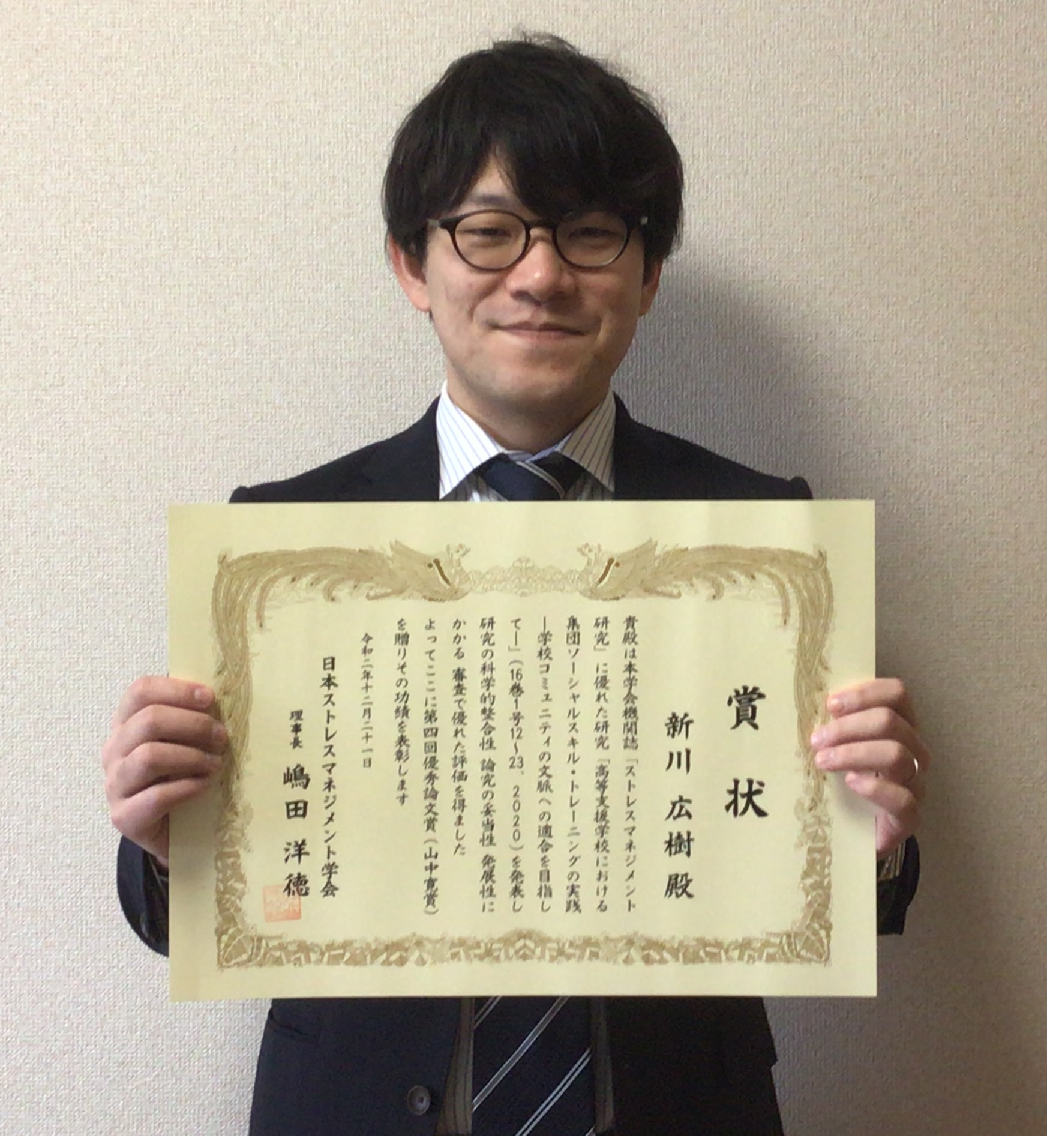 賞状
新川広樹殿
貴殿は本学会機関誌「ストレスマネジメント
研究」に優れた研究「高等支援学校における
集団ソーシャルスキル・トレーニングの実践
―学校コミュニティの文脈への適合を目指し
て―」(16巻1号12～23、2020)を発表し
研究の科学的整合性 論究の妥当性 発展性に
かかる 審査で優れた評価を得ました
よってここに第四回優秀論文賞(山中寛賞)
を贈りその功績を表彰します
令和二年十二月二十一日
日本ストレスマネジメント学会
理事長 嶋田洋徳